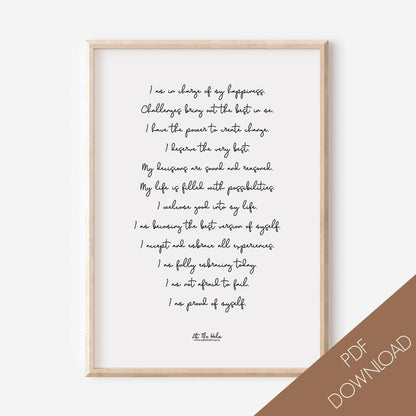 I am in charge of my happiness.
Challenges bring out the best in me.
I have the power to create change.
I deserve the very best.
My decisions are sound and reasoned.
My life is filled with possibilities.
I welcome good into my life.
I am becoming the best version of myself.
I accept and embrace all experiences.
I am fully embracing today.
I am not afraid to fail.
I am proud of myself.
At The Helm
PDF
DOWNLOAD